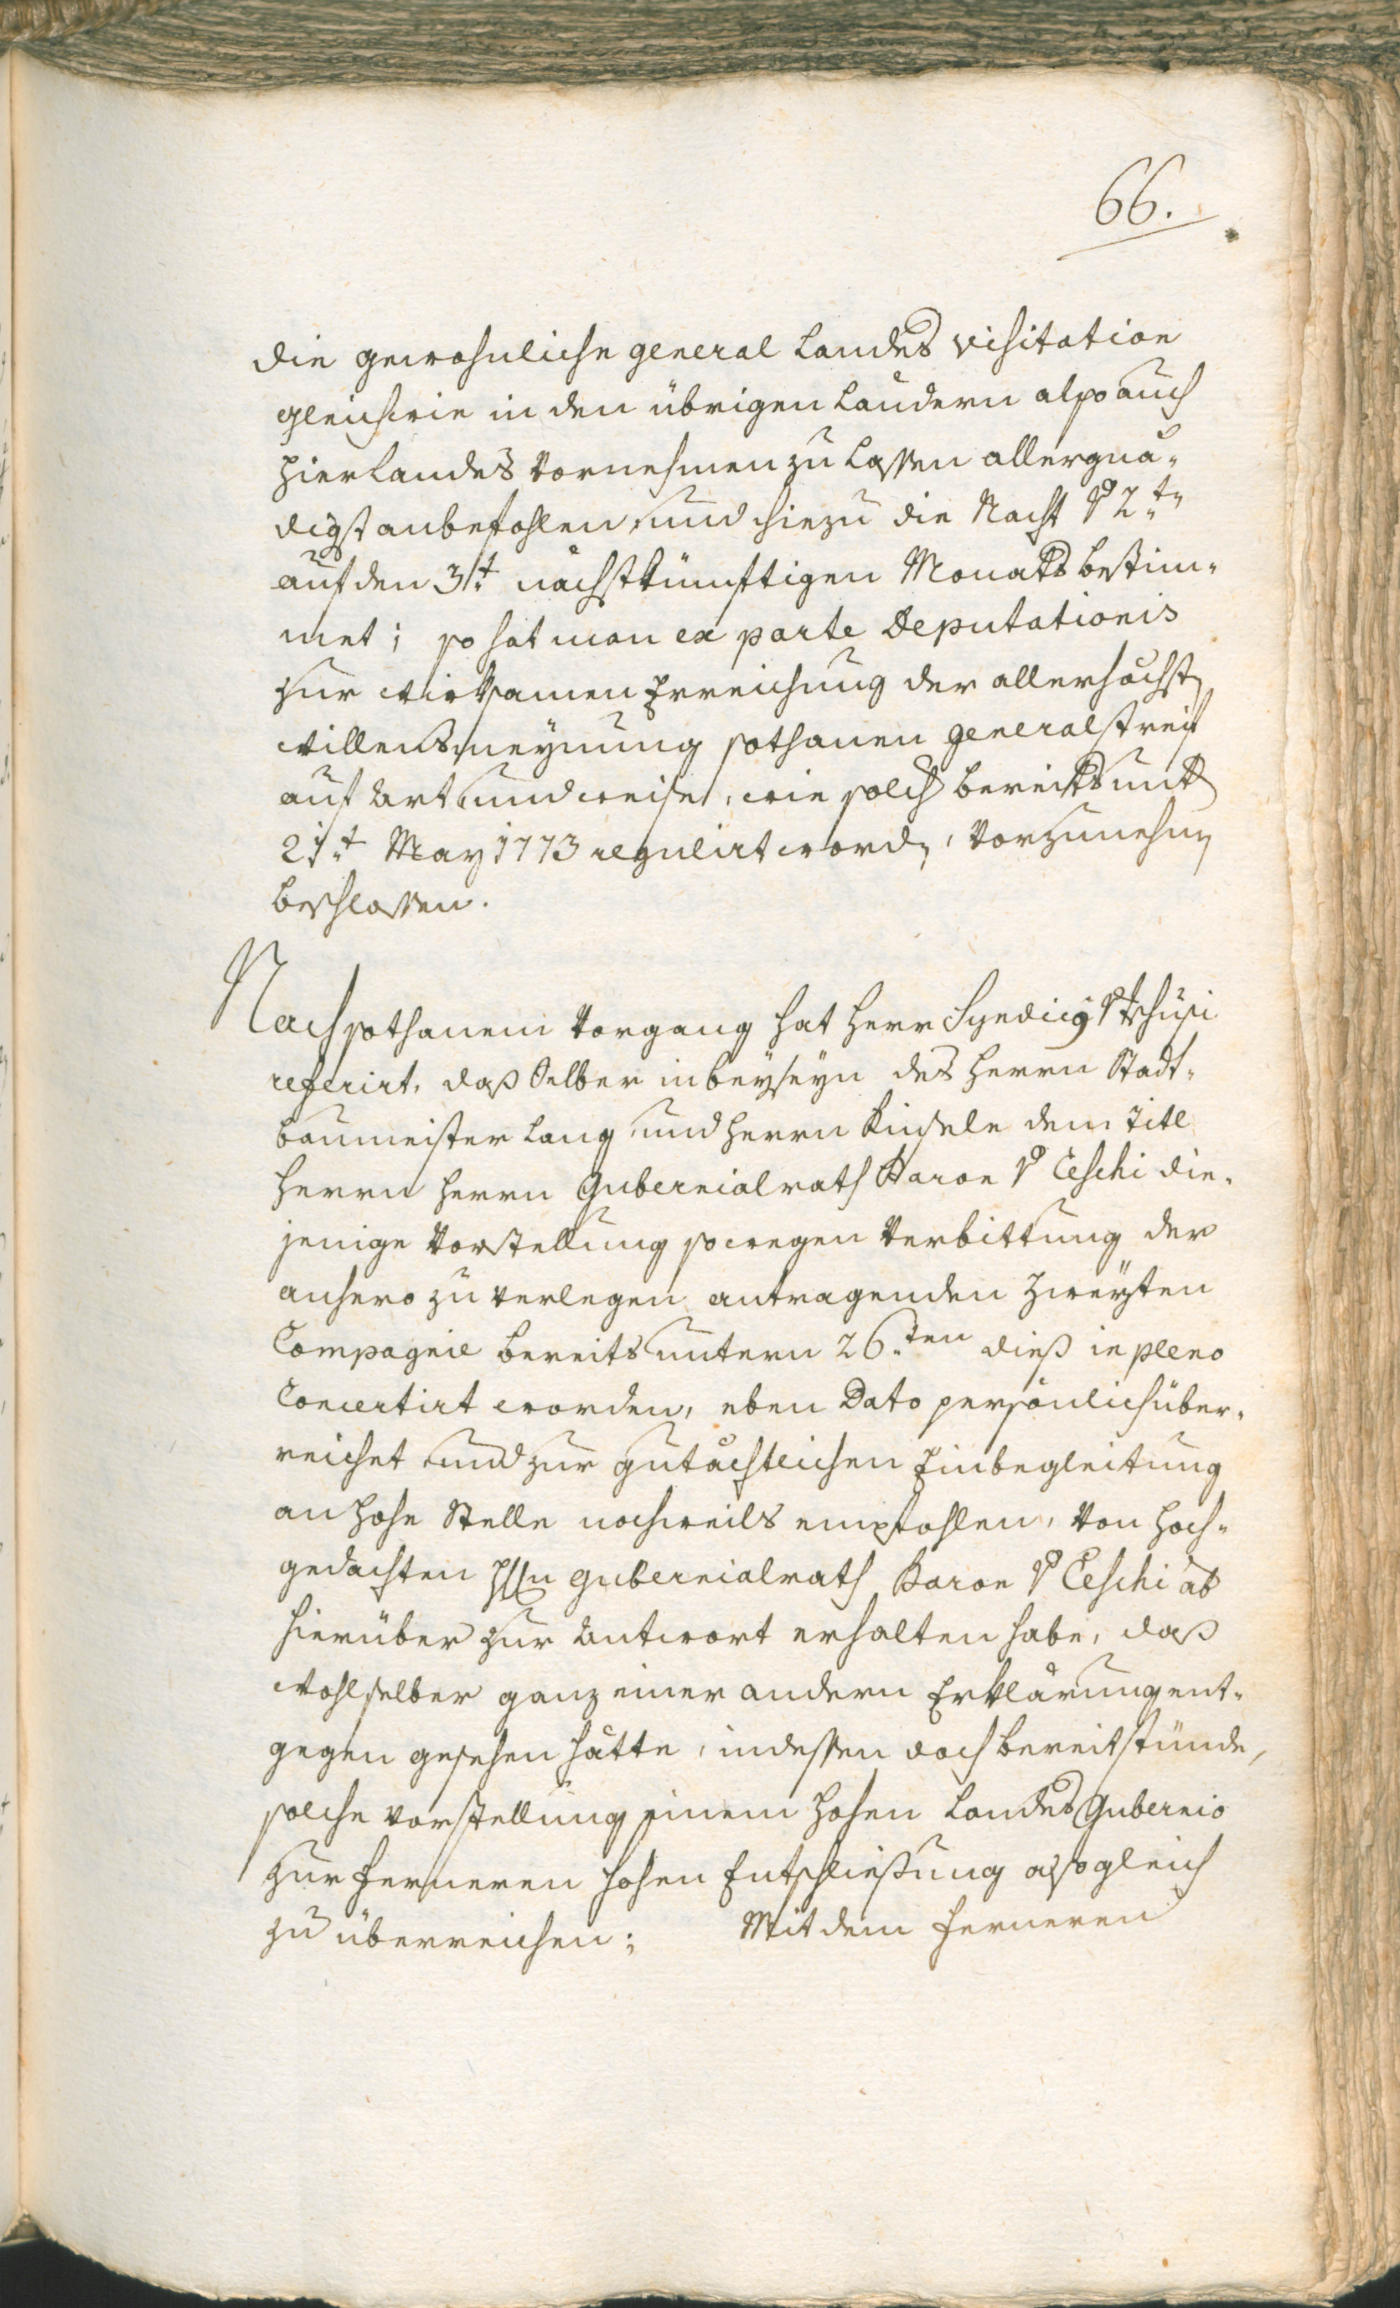 66.
die gewohnliche general Landes visitation
gleichwie in den übrigen Ländern also auch
hierlandes vornehmen zu lassen allergnä-
digst anbefohlen, und hiezu die Nacht v 2.tn
auf den 3.t nächstkünftigen Monats bestim-
met; so hat man ex parte Deputationis
zur wirksamen Erreichung der allerhöchst
willensmeynung sothanen generalstreif
auf Art und weise, wie solch bereits unt
21.t May 1773 regulirt word, vorzunehm
beschlossen.
Nach sothanem Vorgang hat Herr Syndicus v Tschusi
referirt, daß Selber in beyseyn des Herrn Stadt-
baumeister Lang und Herrn Kinsele dem Titl
Herrn Herrn Gubernialrath Baron v Ceschi die-
jenige Vorstellung so wegen Verbittung der
anhero zu verlegen antragenden zweyten
Compagnie bereits untern 26.ten dieß in pleno
Concertirt worden, eben Dato persönlich über-
reichet und zur gutächtlichen Einbegleitung
an hohe Stelle nochweils empfohlen, von hoch-
gedachten Hrn Gubernialrath Baron v Ceschi ab
hierüber zur Antwort erhalten habe, daß
wohlselber ganz einer andern Erklärung ent-
gegen gesehen hätte, indessen doch bereit stünde,
solche Vorstellung einem hohen Landes Gubernio
zur ferneren hohen Entschließung alsogleich
zu überreichen; Mit dem ferneren